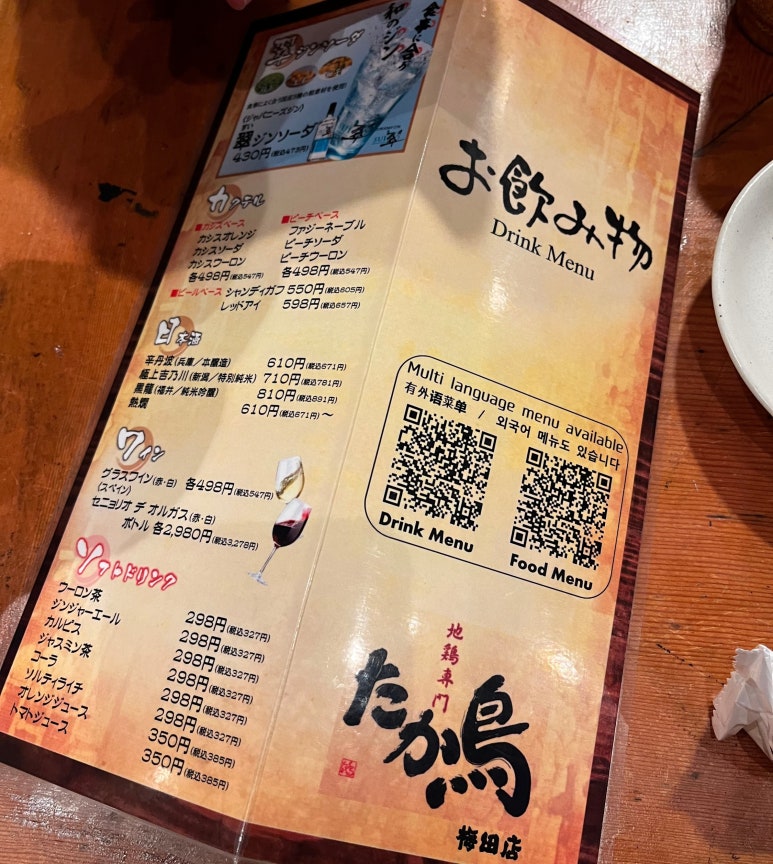 翠ジンソーダ
食事に合う
和のジン
食事によく合う国産3種の和素材を使用!
(ジャパニーズジン)
すい
翠ジンソーダ
430円(税込473円)
カクテル
■カシスベース
カシスオレンジ
カシスソーダ
カシスウーロン
各498円(税込547円)
■ピーチベース
ファジーネーブル
ピーチソーダ
ピーチウーロン
各498円(税込547円)
■ビールベース シャンディガフ 550円(税込605円)
レッドアイ 598円(税込657円)
日本酒
辛丹波(兵庫/本醸造) 610円(税込671円)
極上吉乃川(新潟/特別純米) 710円(税込781円)
黒龍(福井/純米吟醸) 810円(税込891円)
熱燗 610円(税込671円)〜
ワイン
グラスワイン(赤・白) 各498円(税込547円)
(スペイン)
セニョリオ デ オルガス(赤・白)
ボトル 各2,980円(税込3,278円)
ソフトドリンク
ウーロン茶 298円(税込327円)
ジンジャーエール 298円(税込327円)
カルピス 298円(税込327円)
ジャスミン茶 298円(税込327円)
コーラ 298円(税込327円)
ソルティライチ 298円(税込327円)
オレンジジュース 350円(税込385円)
トマトジュース 350円(税込385円)
お飲み物
Drink Menu
Multi language menu available
有外语菜单 / 외국어 메뉴도 있습니다
Drink Menu
Food Menu
地鶏専門
たか鳥
梅田店